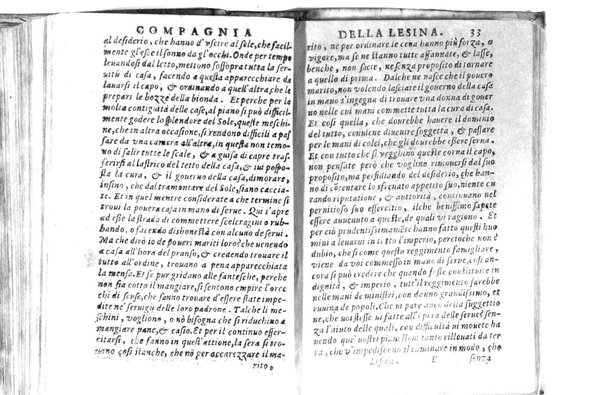 COMPAGNIA
al desiderio, che hanno d'vscire al sole, che facil-
mente gl'esce il sonno da gl'occhi. Onde per tempo
leuandosi dal letto, mettono sossopra tutta la ser-
uitù di casa, facendo a questa apparecchiare da
lauarsi il capo, & ordinando a quell'altra, che le
prepari le bozze della bionda. Et perche per la
molta contiguità delle case, al piano si può difficil-
mente godere lo splendore del Sole, queste meschi-
ne, che in altra occasione, si rendono difficili a pas-
sare da vna camera all'altra, in questa non temo-
no di salir tutte le scale, & a guisa di capre tras-
ferirsi al lastrico del tetto della casa, & iui pospo-
sta la cura, & il gouerno della casa, dimorare,
insino, che dal tramontare del Sole, siano caccia-
te. Et in quel mentre considerate a che termine si
troui la pouera casa in mano di serue. Qui s'apre
ad esse la strada di commettere sceleragini o rub-
bando, o facendo dishonestà con alcuno de serui.
Ma che dirò io de poueri mariti loro? che venendo
a casa all'hora del pranso, & credendo trouare il
tutto all'ordine, trouano a pena apparecchiata
la mensa. Et se pur gridano alle fantesche, perche
non sia cotto il mangiare, si sentono empire l'orec
chi di scuse, che sanno trouare d'essere state impe-
dite ne' seruigij delle loro padrone. Talche li me-
schini, vogliono, o nò bisogna che si riduchino a
mangiare pane, & casio. Et per il continuo esser-
citarsi, che fanno in quest'attione, la sera si tro-
uano così stanche, che nō per accarezzare il ma-
rito,
DELLA LESINA. 33
rito, nè per ordinare la cena hanno più forza, o
vigore, ma se ne stanno tutte affannate, & lasse,
benche, non satie, nè senza proposito di tornare
a quello di prima. Dalche ne nasce che il pouero
marito, non volendo lasciare il gouerno della casa
in mano s'ingegna di trouare vna donna di gouer
no nelle cui mani commette tutta la cura di casa.
Et così quella, che dourebbe hauere il dominio
del tutto, conuiene diuenire soggetta, & passare
per le mani di colei, che gli dourebbe essere serua.
Et con tutto che si vegghino queste corna il capo,
non pensate però che voglino rimouersi dal suo
proposito, ma persidiando del desiderio, che han-
no di ottentare lo sfrenato appetito suo, niente cu
rando riputatione, & auttorità, continuano nel
pernitioso suo essercitio, ilche benissimo sapete
essere auuenuto a queste, di quali vi ragiono. Et
per ciò prudentissimamēte hanno fatto questi huo
mini a leuarui in tutto l'imperio, percioche non è
dubio, che si come questo reggimento famigliare,
viene da voi commesso in mano di serue, così an-
cora si può credere che quando fosse constituite in
dignità, & imperio, tutto il reggimento sarebbe
nelle mani de ministri, con danno grandissimo, et
ruuina de popoli. Che vi pare ancora della soggettio
ne, che voi stesse ui fate all'opera delle serue? sen-
za l'aiuto delle quali, con difficultà ui mouete ha
uendo que' uostri pianelloni tanto rilleuati da ter
ra, che v'impediscono il caminare in modo, che
Lesina. E senza